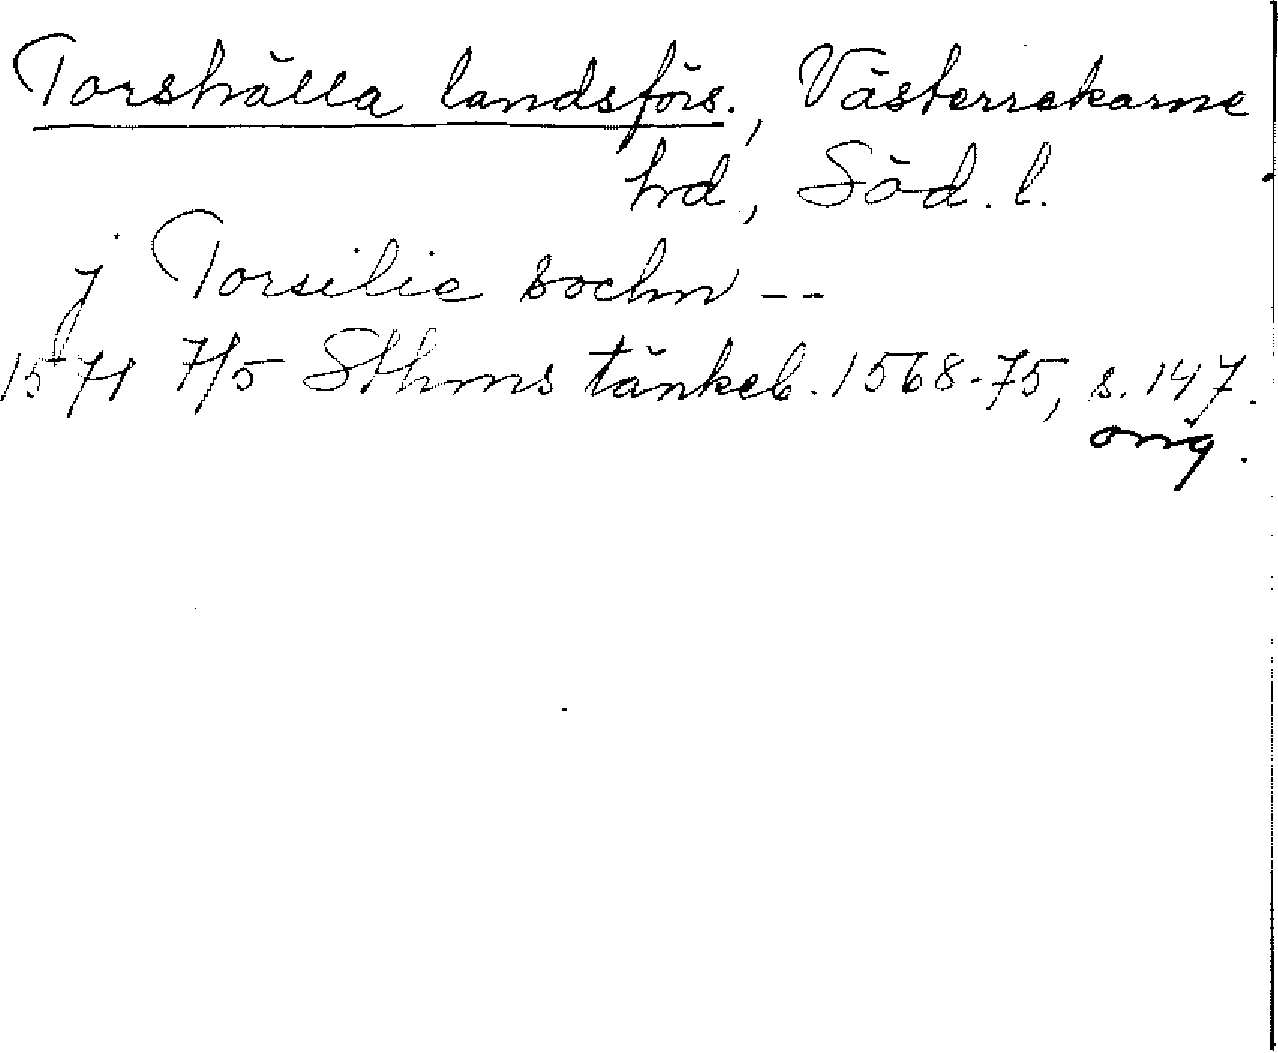 Torshälla landsförs., Västerrekarne
hd, Söd. l.
j Torsilie sochn --
1571 7/5 Sthms tänkeb. 1568-75, s. 147.
orig.